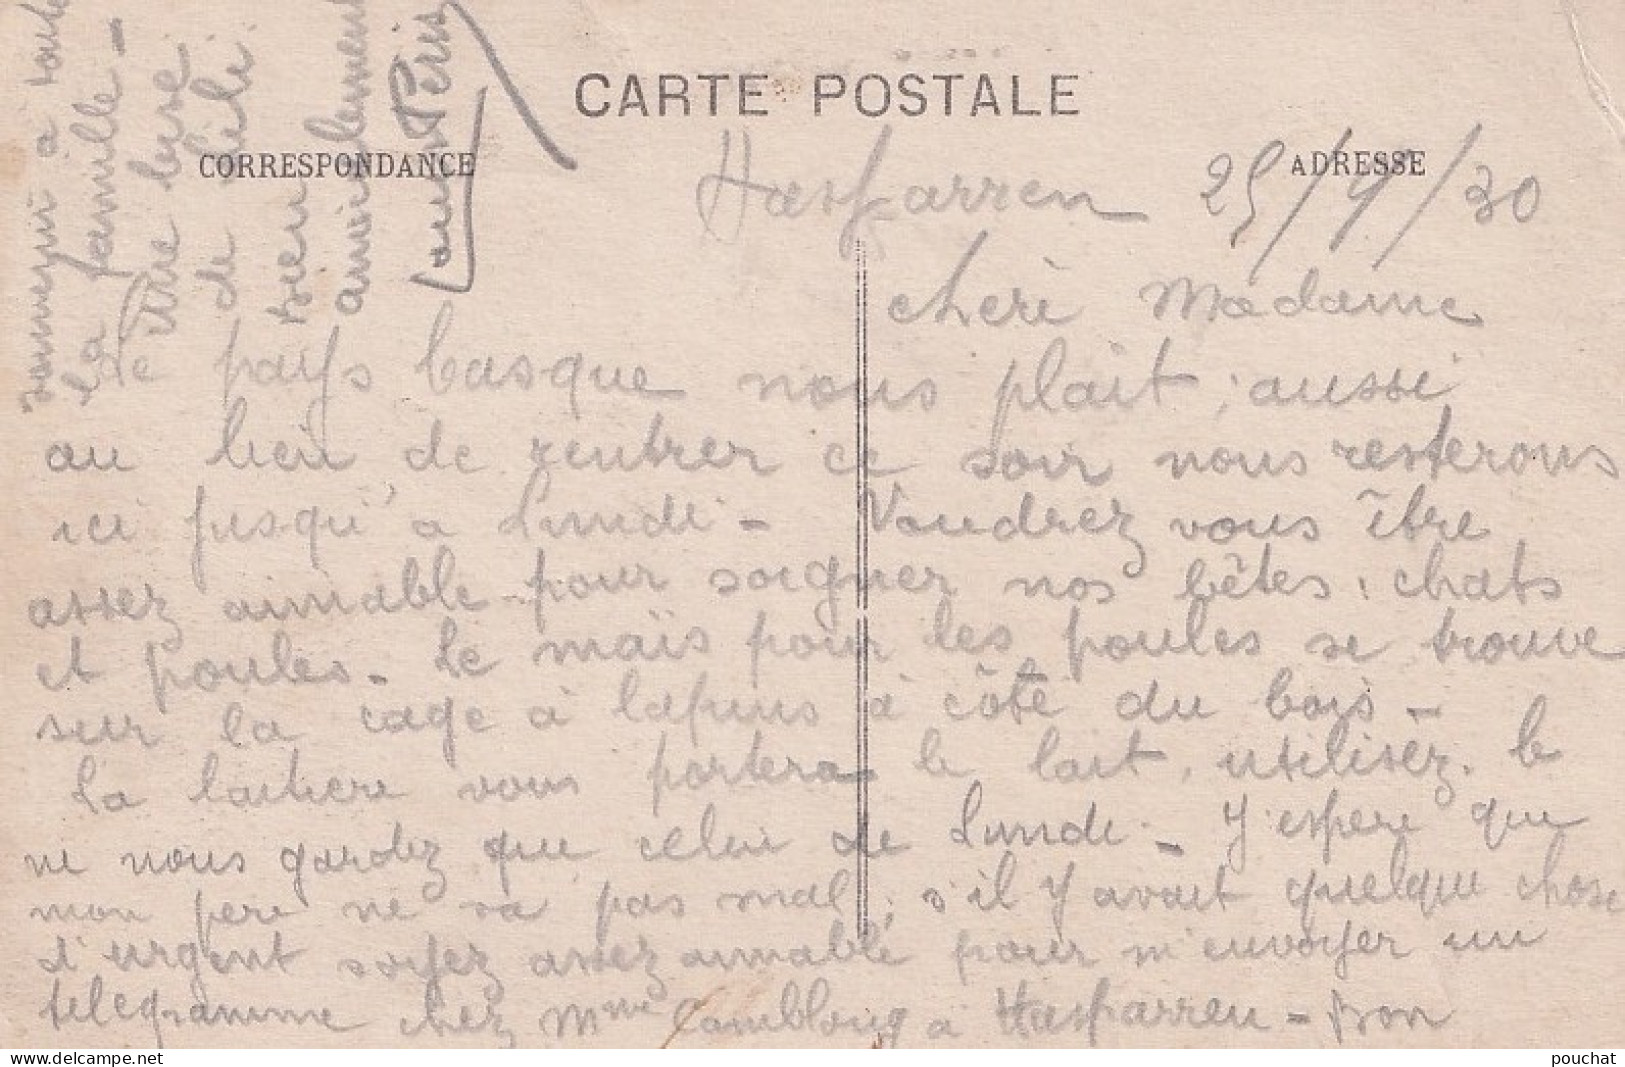 CARTE POSTALE
CORRESPONDANCE
ADRESSE
Hasparren 25/4/30
chère Madame
Le pays basque nous plait, aussi
au lieu de rentrer ce soir nous resterons
ici jusqu'à Lundi - Voudrez vous être
assez aimable pour soigner nos bêtes : chats
et poules - Le maïs pour les poules se trouve
sur la cage à lapins à côté du bois -
La laitière vous portera le lait, utilisez-le
ne nous gardez que celui de Lundi - J'espère que
mon père ne va pas mal ; s'il y avait quelque chose
d'urgent soyez assez aimable pour m'envoyer un
télégramme chez Mme Camblong à Hasparren - Bon
à toute
la famille -
une bise
de Lili
bien
amicalement